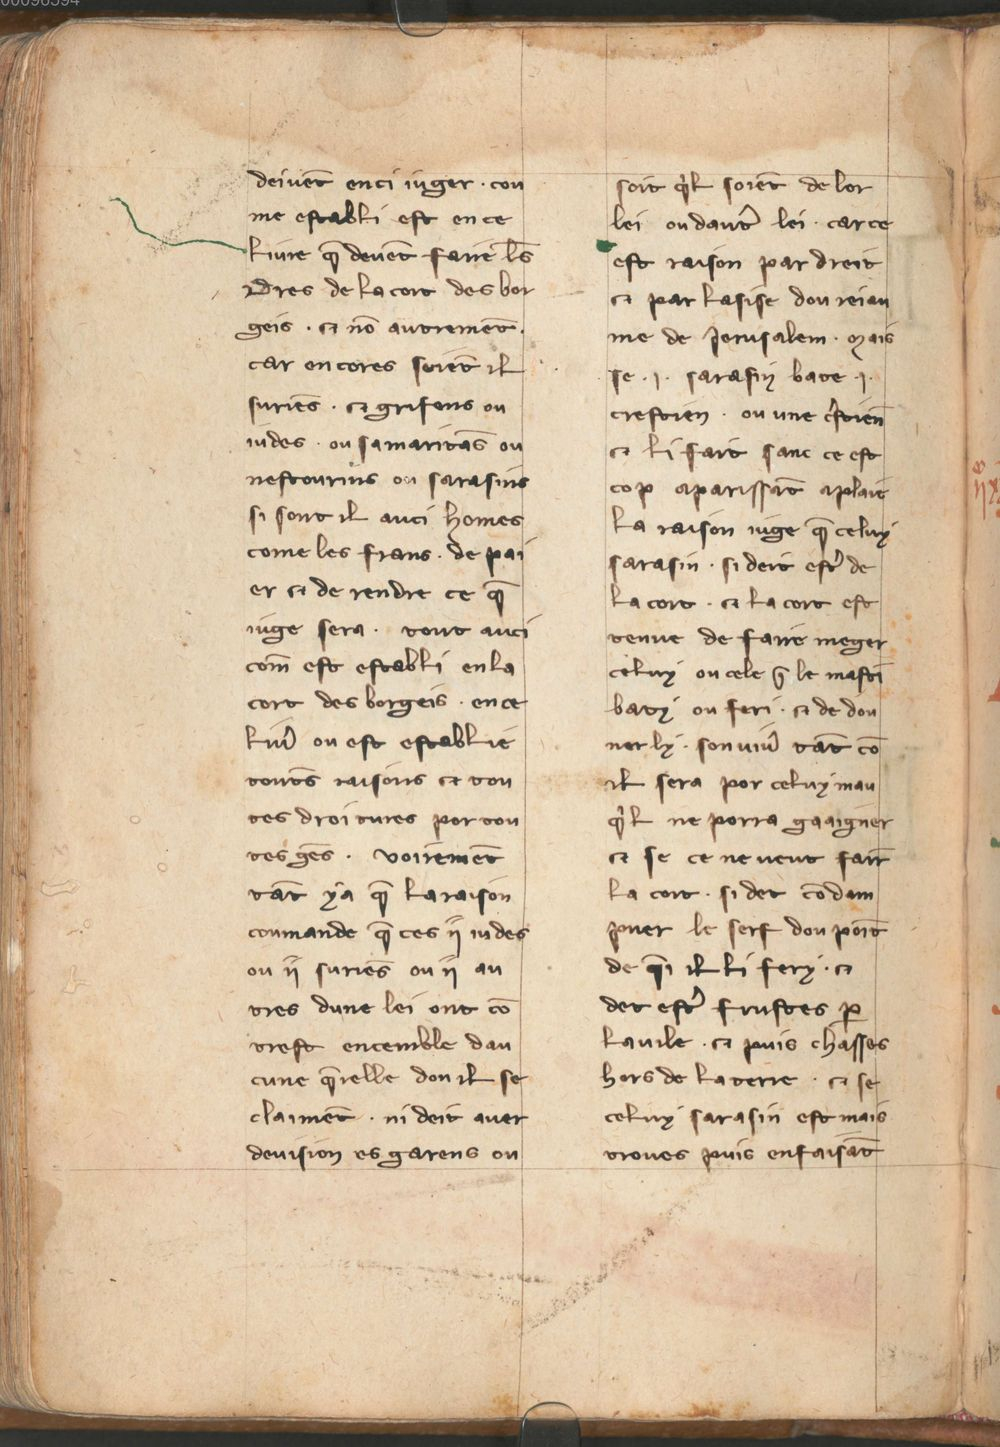 deiuēt enci iuger · con
me establi est en ce
liure q̄ deuēt faire l̄s
dres de la cort des bor
geis · ⁊ nō autremēt ·
car encores soiēt il
suriēs · ⁊ grifons ou
iudes · ou samaritās ou
nestourins ou sarasins
si sont il auci homes
come les frans · de pai
er ⁊ de rendre ce q̄
iuge sera · tout auci
com̄ est establi en la
cort des borgeis · en ce
liur̉ ou est establie
toutēs raisons ⁊ tou
tes droitures por tou
tes gēs · voiremēt
tāt ya q̄ la raison
coumande q̄ ces ij iudes
ou ij suriēs ou ij au
tres dune lei ont cō
trest encemble dau
cune q̄relle don il se
claimēt · ni deit auer
deuision es garens ou
soit q̉l soiēt de lor
lei ou dautr̉ lei · car ce
est raison par dreit
⁊ par lasise dou reiau
me de Jerusalem · Mais
se · j · sarasin bate · j ·
crestien · ou une cr̉tien̄
⁊ li fait sanc ce est
cop aparissāt aplaie
la raison iuge q̄ celuy
sarasin · si deit estr̉ de
la cort · ⁊ la cort est
tenue de faire meger
celuy ou cele q̄ le mastī
baty ou feri · ⁊ de dou
ner ly · son uiur̉ tāt cō
il sera por celuy mau
q̉l ne porra gaaigner
⁊ se ce ne ueut fair̄
la cort · si det cōdam
pner le serf dou poīt
de q̄i il li fery · ⁊
det estr̉ frustes ꝑ
la uile · ⁊ puis chasses
hors de la terre · ⁊ se
celuy sarasin est mais
troues puis enfaisāt